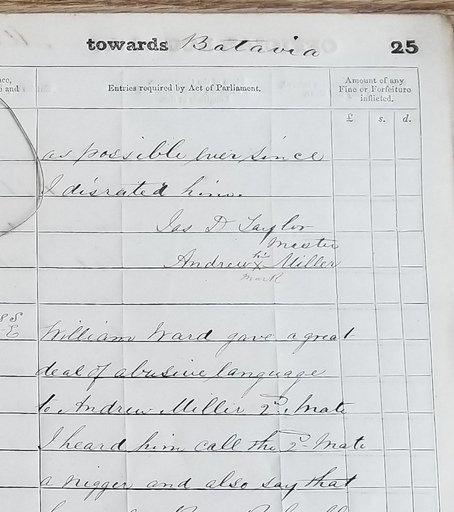 towards Batavia 25
Entries required by Act of Parliament.
Amount of any
Fine or Forfeiture
inflicted.
and
£ s. d.
as possible ever since
I disrated him.
Jas D Taylor
Master
Andrew X Miller
his
mark
William Ward gave a great
deal of abusive language
to Andrew Miller 2nd Mate
I heard him call the 2nd Mate
a nigger and also say that